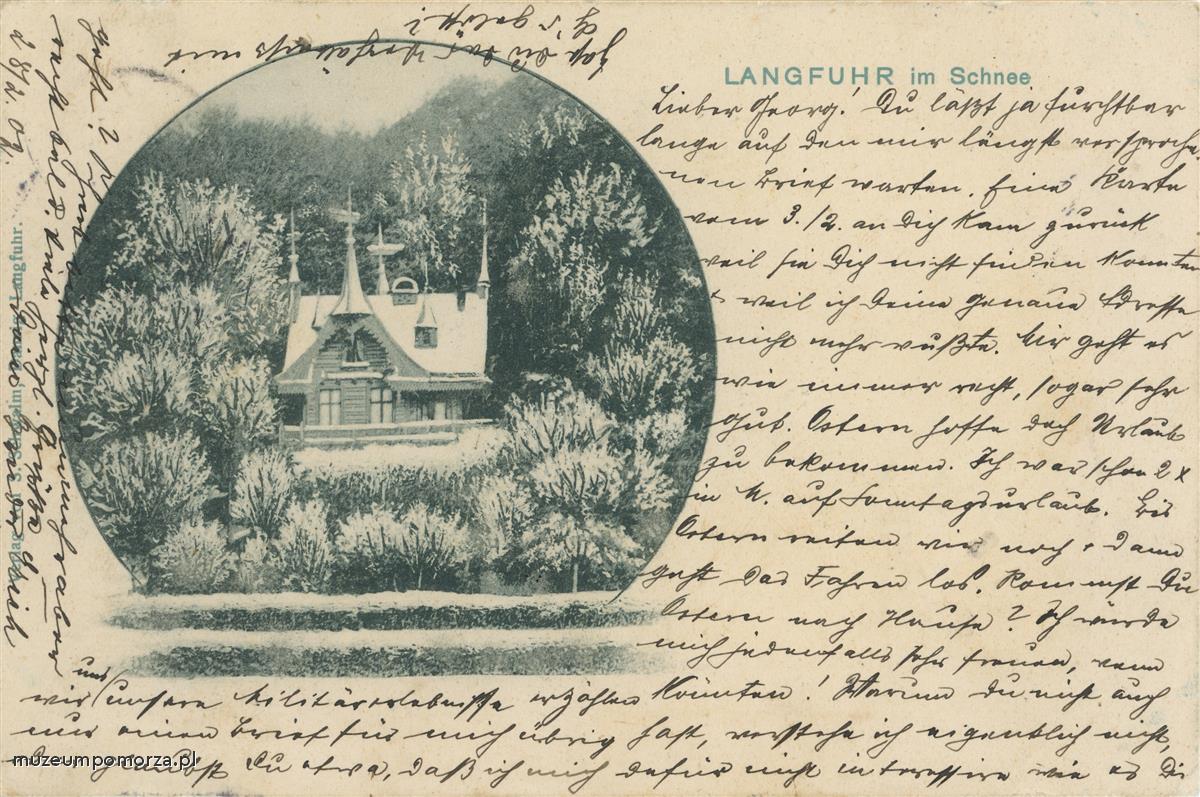 LANGFUHR im Schnee
Lieber Georg! Du läßt ja furchtbar
lange auf den mir längst versproche
nen Brief warten. Eine Karte
vom 3./2. an Dich kam zurück
weil sie Dich nicht finden konnten
weil ich Deine genaue Adresse
nicht mehr wußte. Mir geht es
wie immer recht, sogar sehr
gut. Ostern hoffe doch Urlaub
zu bekommen. Ich war schon 2 x
in M. auf Sonntagsurlaub. Bis
Ostern reiten wir noch, dann
geht das Fahren los. Kommst Du
Ostern nach Hause? Ich würde
mich jedenfalls sehr freuen, wenn
wir uns unsere Militärerlebnisse erzählen könnten! Warum Du nicht auch
nur einen Brief für mich übrig hast, verstehe ich eigentlich nicht,
Du etwa, daß ich mich dafür nicht interessire wie es Dir
geht?
recht bald. Viele herzl. Grüße
28/2. 09.
Langfuhr.
muzeumpomorza.pl